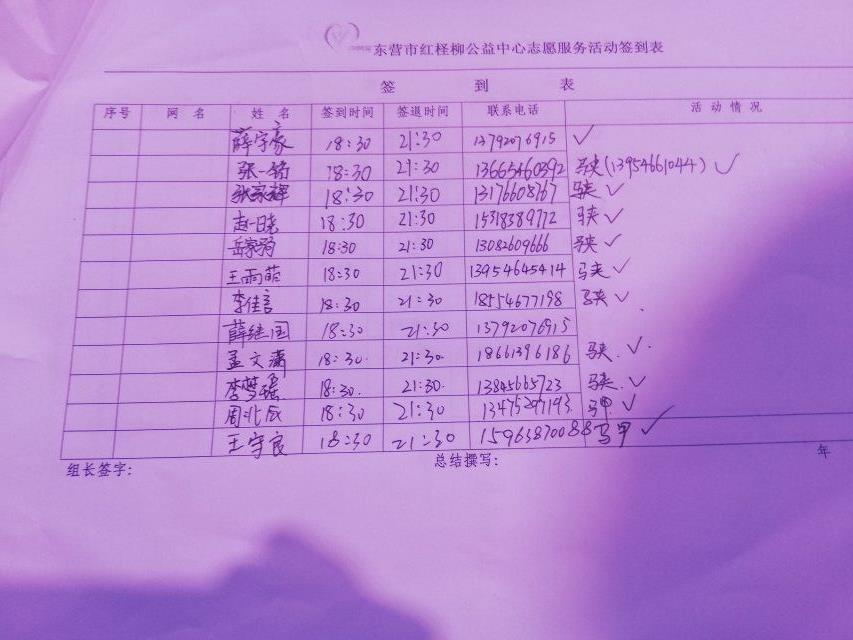 东营市红柽柳公益中心志愿服务活动签到表
签 到 表
序号 网 名 姓 名 签到时间 签退时间 联系电话 活动情况
薛宇豪 18:30 21:30 13792076915 ✓
张一铭 18:30 21:30 13665460392 马夹(13954661044) ✓
张家辉 18:30 21:30 13176608767 马夹 ✓
赵一晓 18:30 21:30 15318389772 马夹 ✓
岳家骑 18:30 21:30 13082609666 马夹 ✓
王雨萌 18:30 21:30 13954645414 马夹 ✓
李佳言 18:30 21:30 18554677198 马夹 ✓
薛继国 18:30 21:30 13792076915
孟文潇 18:30 21:30 18661396186 马夹 ✓
李梦瑶 18:30 21:30 13845665723 马夹 ✓
周北辰 18:30 21:30 13475297193 马甲 ✓
王守良 18:30 21:30 15963870088 马甲 ✓
组长签字: 总结撰写: 年